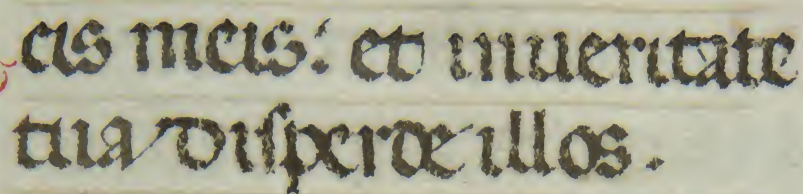 cis meis: et inueritate
tua disperde illos.